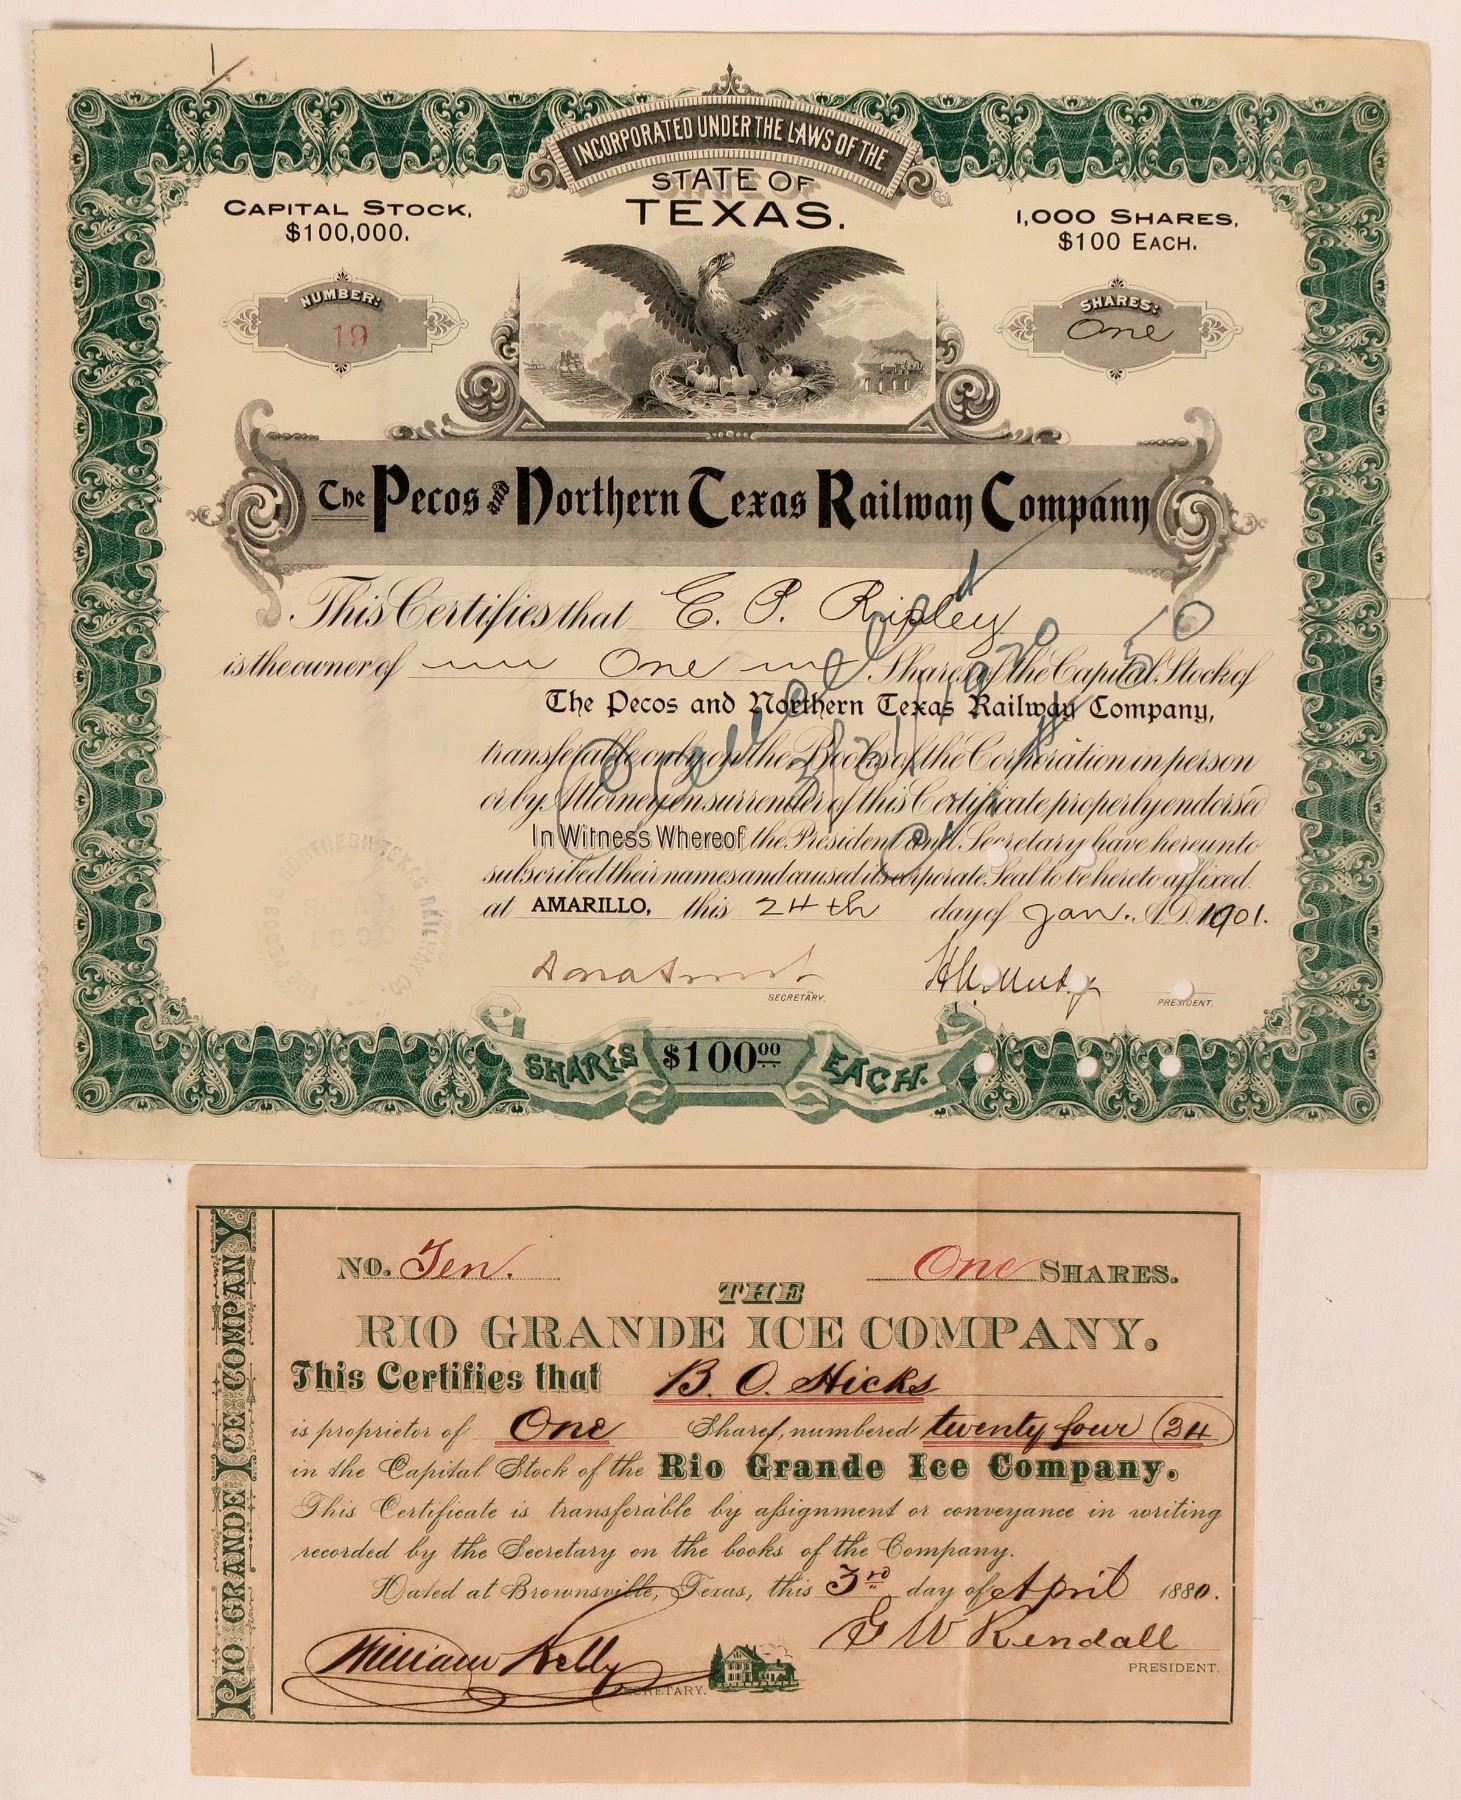 INCORPORATED UNDER THE LAWS OF THE
STATE OF
TEXAS.
CAPITAL STOCK,
$100,000.
1,000 SHARES,
$100 EACH.
NUMBER:
19
SHARES:
One
The Pecos and Northern Texas Railway Company
This Certifies that E. P. Ripley
is the owner of One Shares of the Capital Stock of
The Pecos and Northern Texas Railway Company,
transferable only on the Books of the Corporation in person
or by Attorney on surrender of this Certificate properly endorsed
In Witness Whereof the President and Secretary have hereunto
subscribed their names and caused its corporate Seal to be hereto affixed
at AMARILLO, this 24th day of Jan. A.D. 1901.
Cancelled
SECRETARY.
PRESIDENT.
SHARES $100.00 EACH.
RIO GRANDE ICE COMPANY
NO. Ten.
One SHARES.
THE
RIO GRANDE ICE COMPANY.
This Certifies that B. O. Hicks
is proprietor of One Share, numbered twenty four (24)
in the Capital Stock of the Rio Grande Ice Company.
This Certificate is transferable by assignment or conveyance in writing
recorded by the Secretary on the books of the Company.
Dated at Brownsville, Texas, this 3rd day of April 1880.
William Kelly
SECRETARY.
G W Kendall
PRESIDENT.